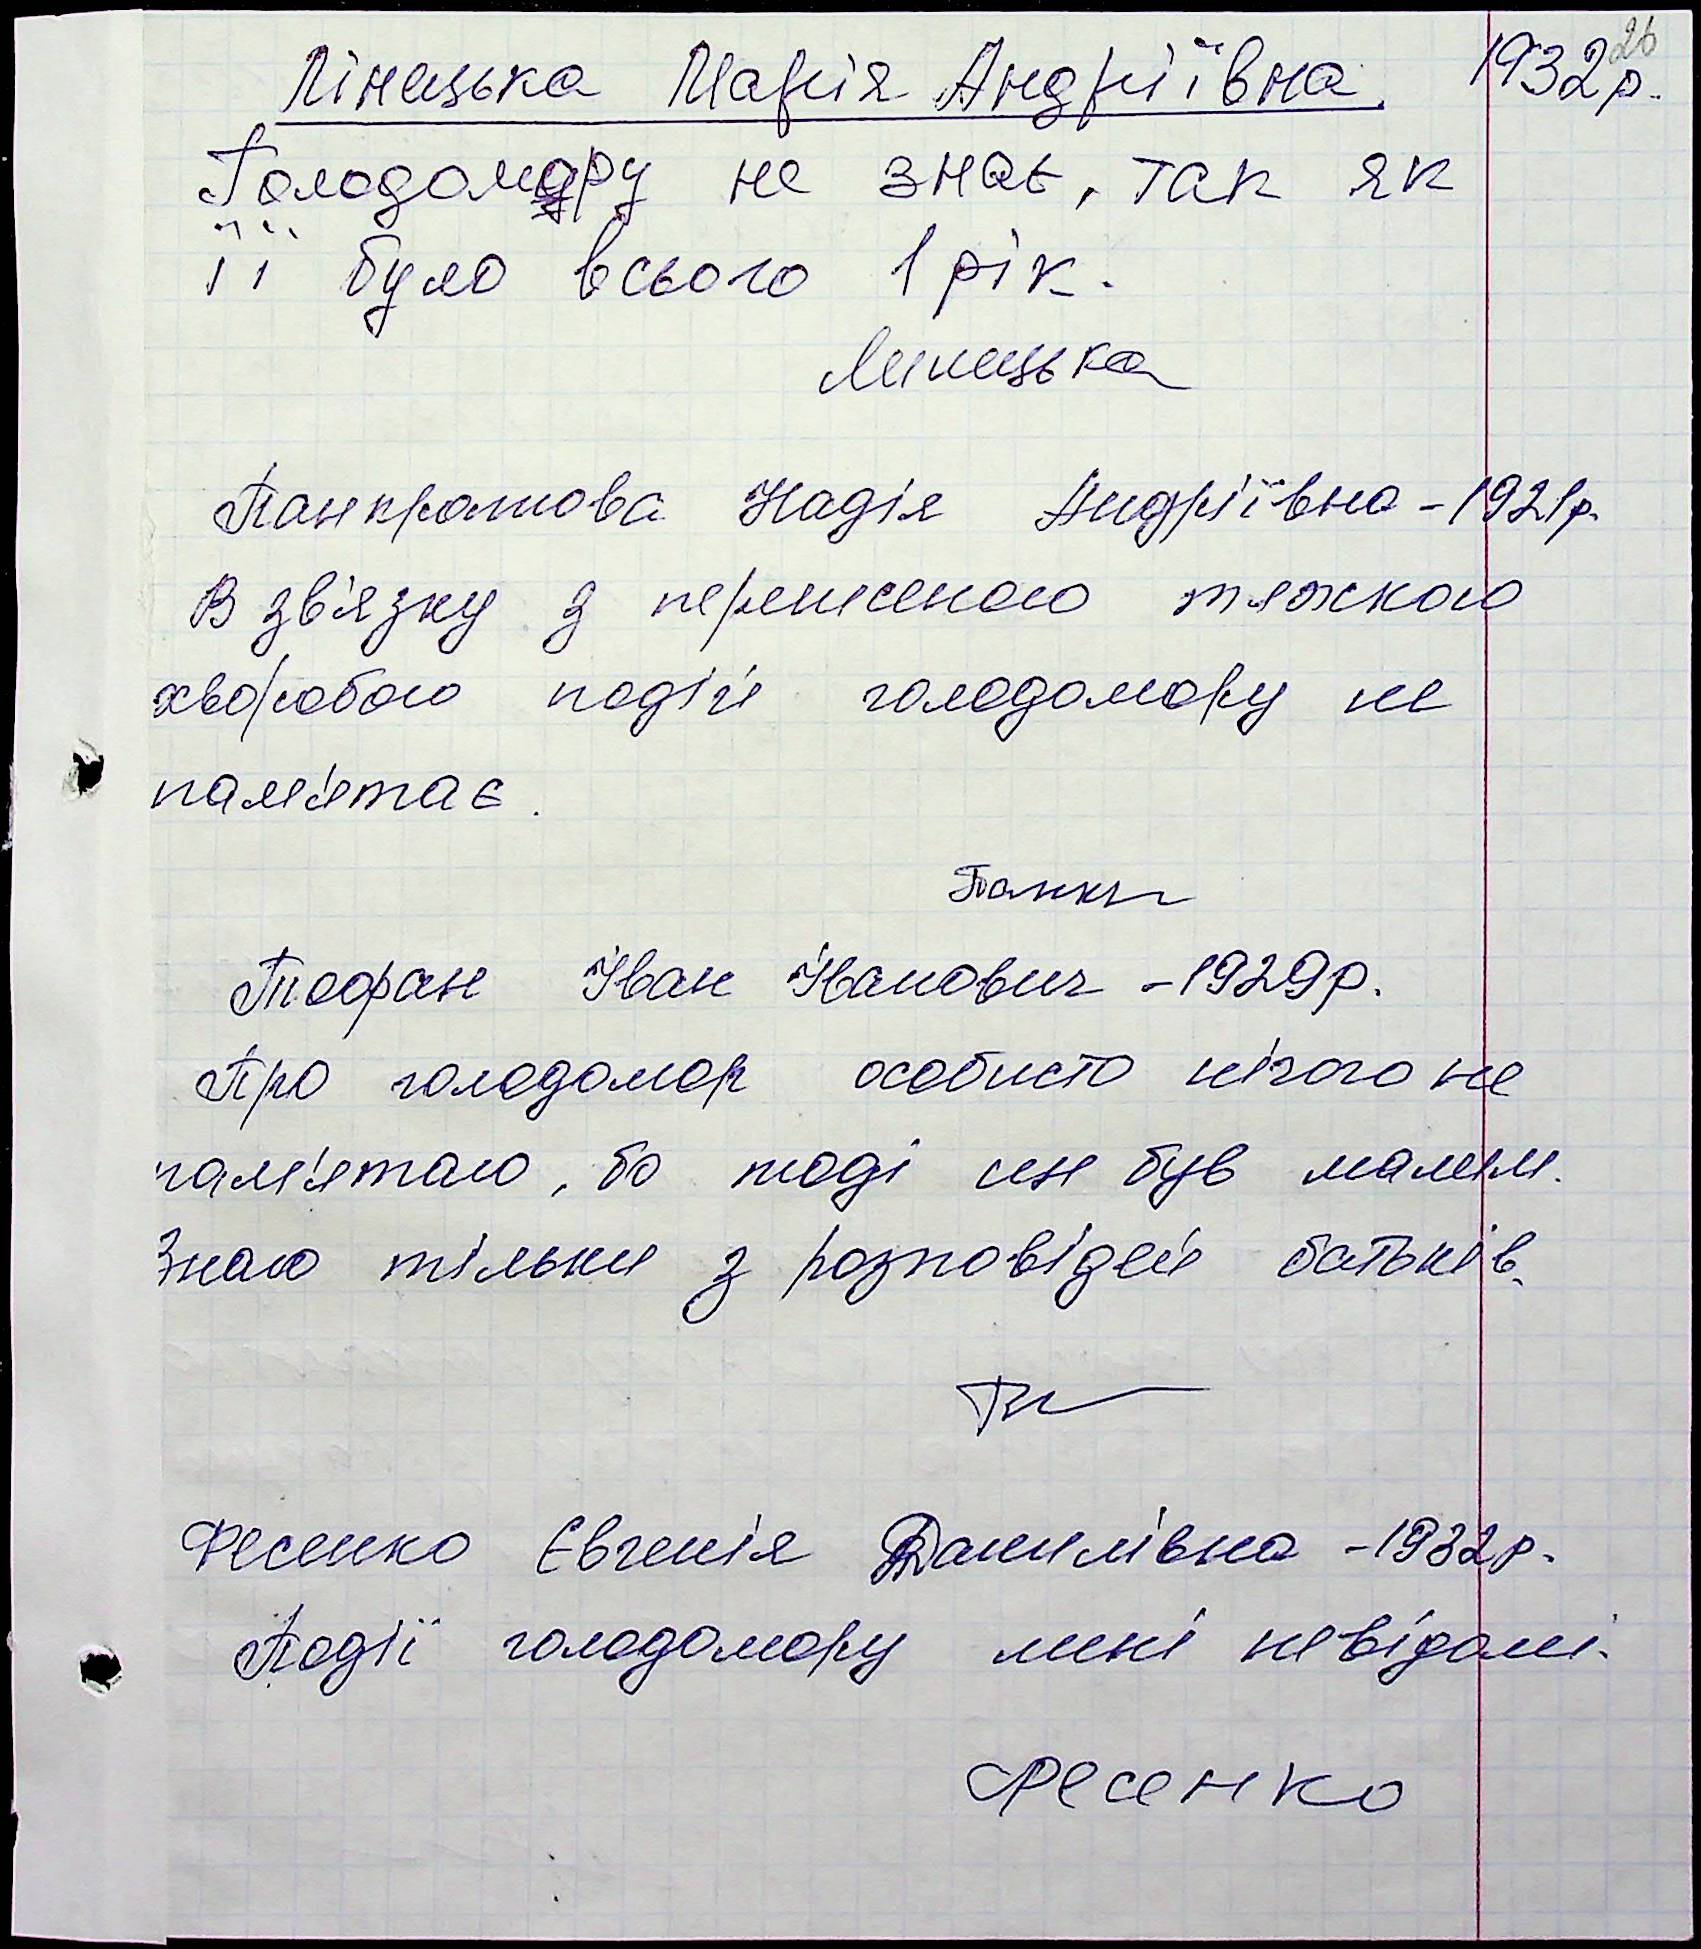 26
Лінецька Марія Андріївна. 1932р.
Голодомору не знає, так як
її було всього 1 рік.
Линецька
Панкратова Надія Андріївна - 1921р.
В зв'язку з перенесеною тяжкою
хворобою подій голодомору не
пам'ятає.
Панкр
Тофан Іван Іванович - 1929р.
Про голодомор особисто нічого не
пам'ятаю, бо тоді ще був малим.
Знаю тільки з розповідей батьків.
Фесенко Євгенія Данилівна - 1932р.
Події голодомору мені невідомі.
Фесенко